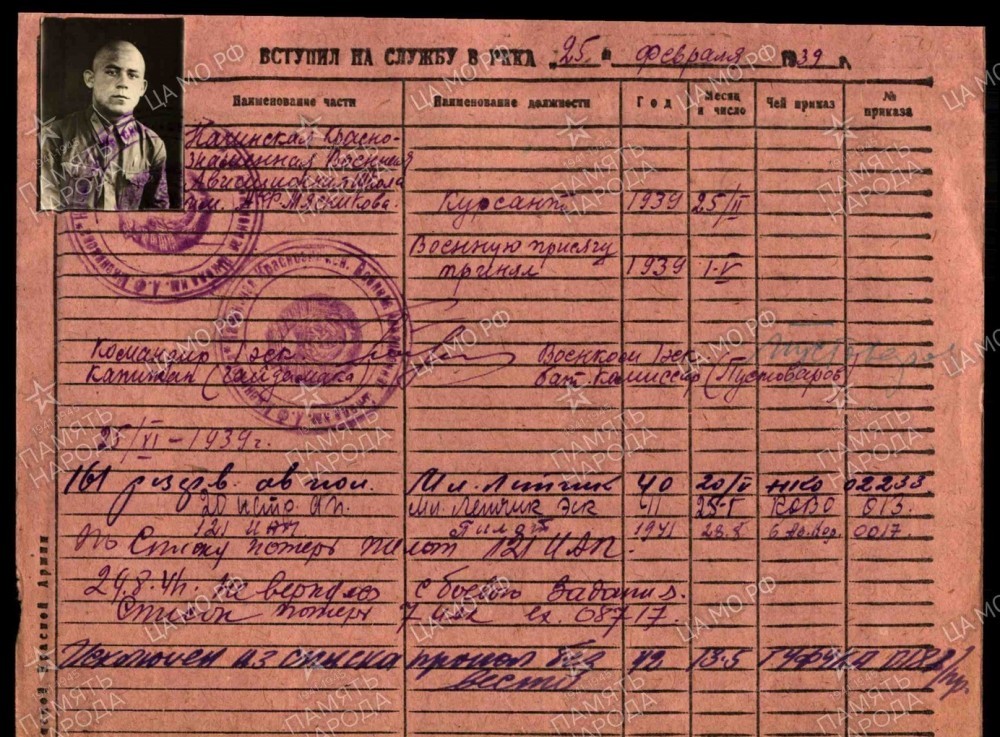 ВСТУПИЛ НА СЛУЖБУ В РККА „25." февраля 1939 г.
Наименование части Наименование должности Год Месяц и число Чей приказ № приказа
Качинская Красно-
знаменная Военная
Авиационная Школа
им. А.Ф. Мясникова. Курсант 1939 25/II
Военную присягу
принял 1939 1-V
Командир 1 эск. Военком 1 эск.
Капитан (Гайдамака) бат. комиссар (Пустоваров)
25/XI-1939г.
161 резерв. ав пол. Мл. Летчик 40 20/II НКО 02233
20 ИАП. Мл. Летчик эск 41 25-I КОВО 013.
121 ИАП Пилот 1941 28.8 0017.
По списку потерь пилот 121 ИАП.
29.8.41г. не вернулся с боевого задания.
Список потерь вх. 08717.
Исключен из списка пропал без 42 13-5 ГУФУКА
вести
Красной Армии
ПАМЯТЬ НАРОДА
ЦА МО РФ